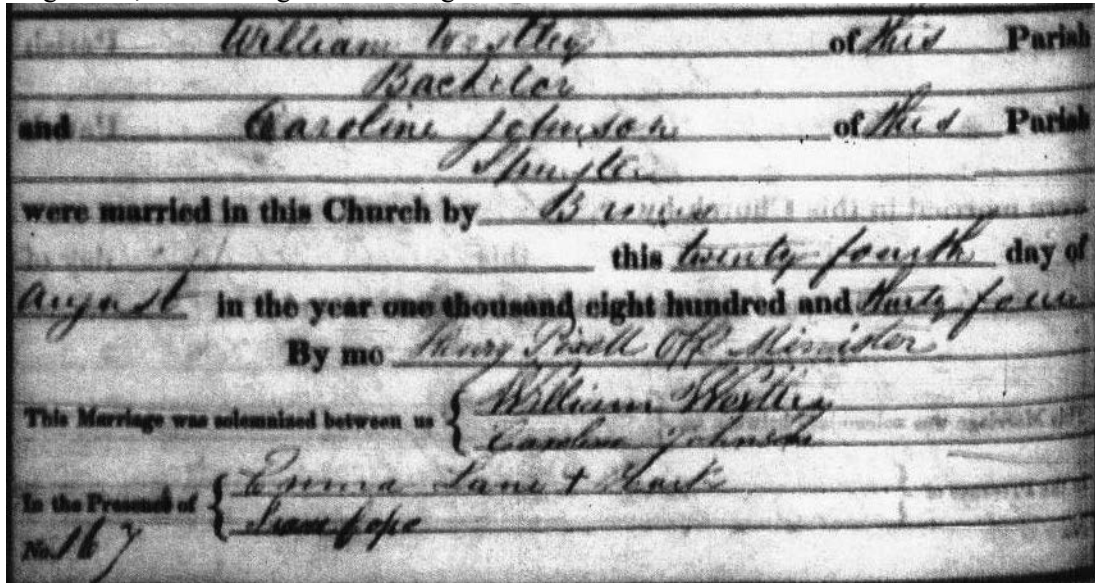 William Westley of this Parish
Bachelor
and Caroline Johnson of this Parish
Spinster
were married in this Church by Banns
this twenty fourth day of
August in the year one thousand eight hundred and thirty four
By me Henry Off Minister
This Marriage was solemnized between us { William Westley
Caroline Johnson
In the Presence of { Emma Lane + Mark
Isaac Pope
No. 167